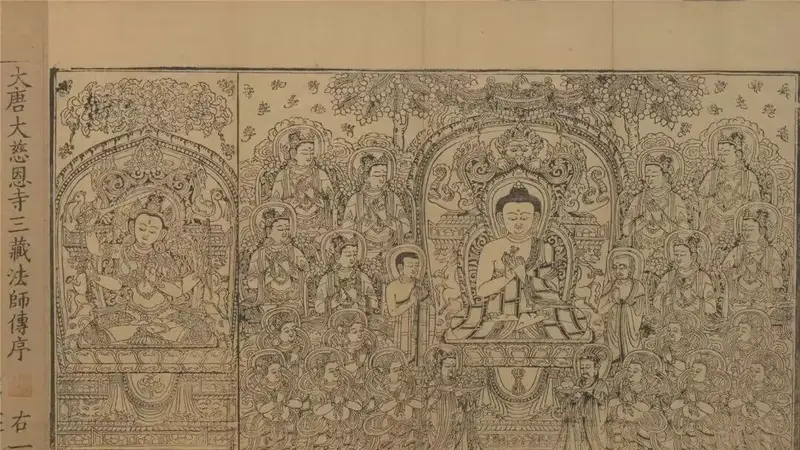 大唐大慈恩寺三藏法師傳序
右一